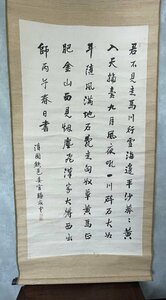 君不見走馬川行雪海邊平沙莽莽黃
入天輪臺九月風夜吼一川碎石大如
斗隨風滿地石亂走匈奴草黃馬正
肥金山西見烟塵飛漢家大將西出
師丙午春日書